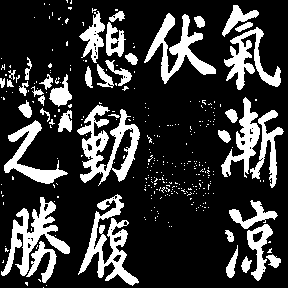 氣漸涼
伏
想動履
之勝